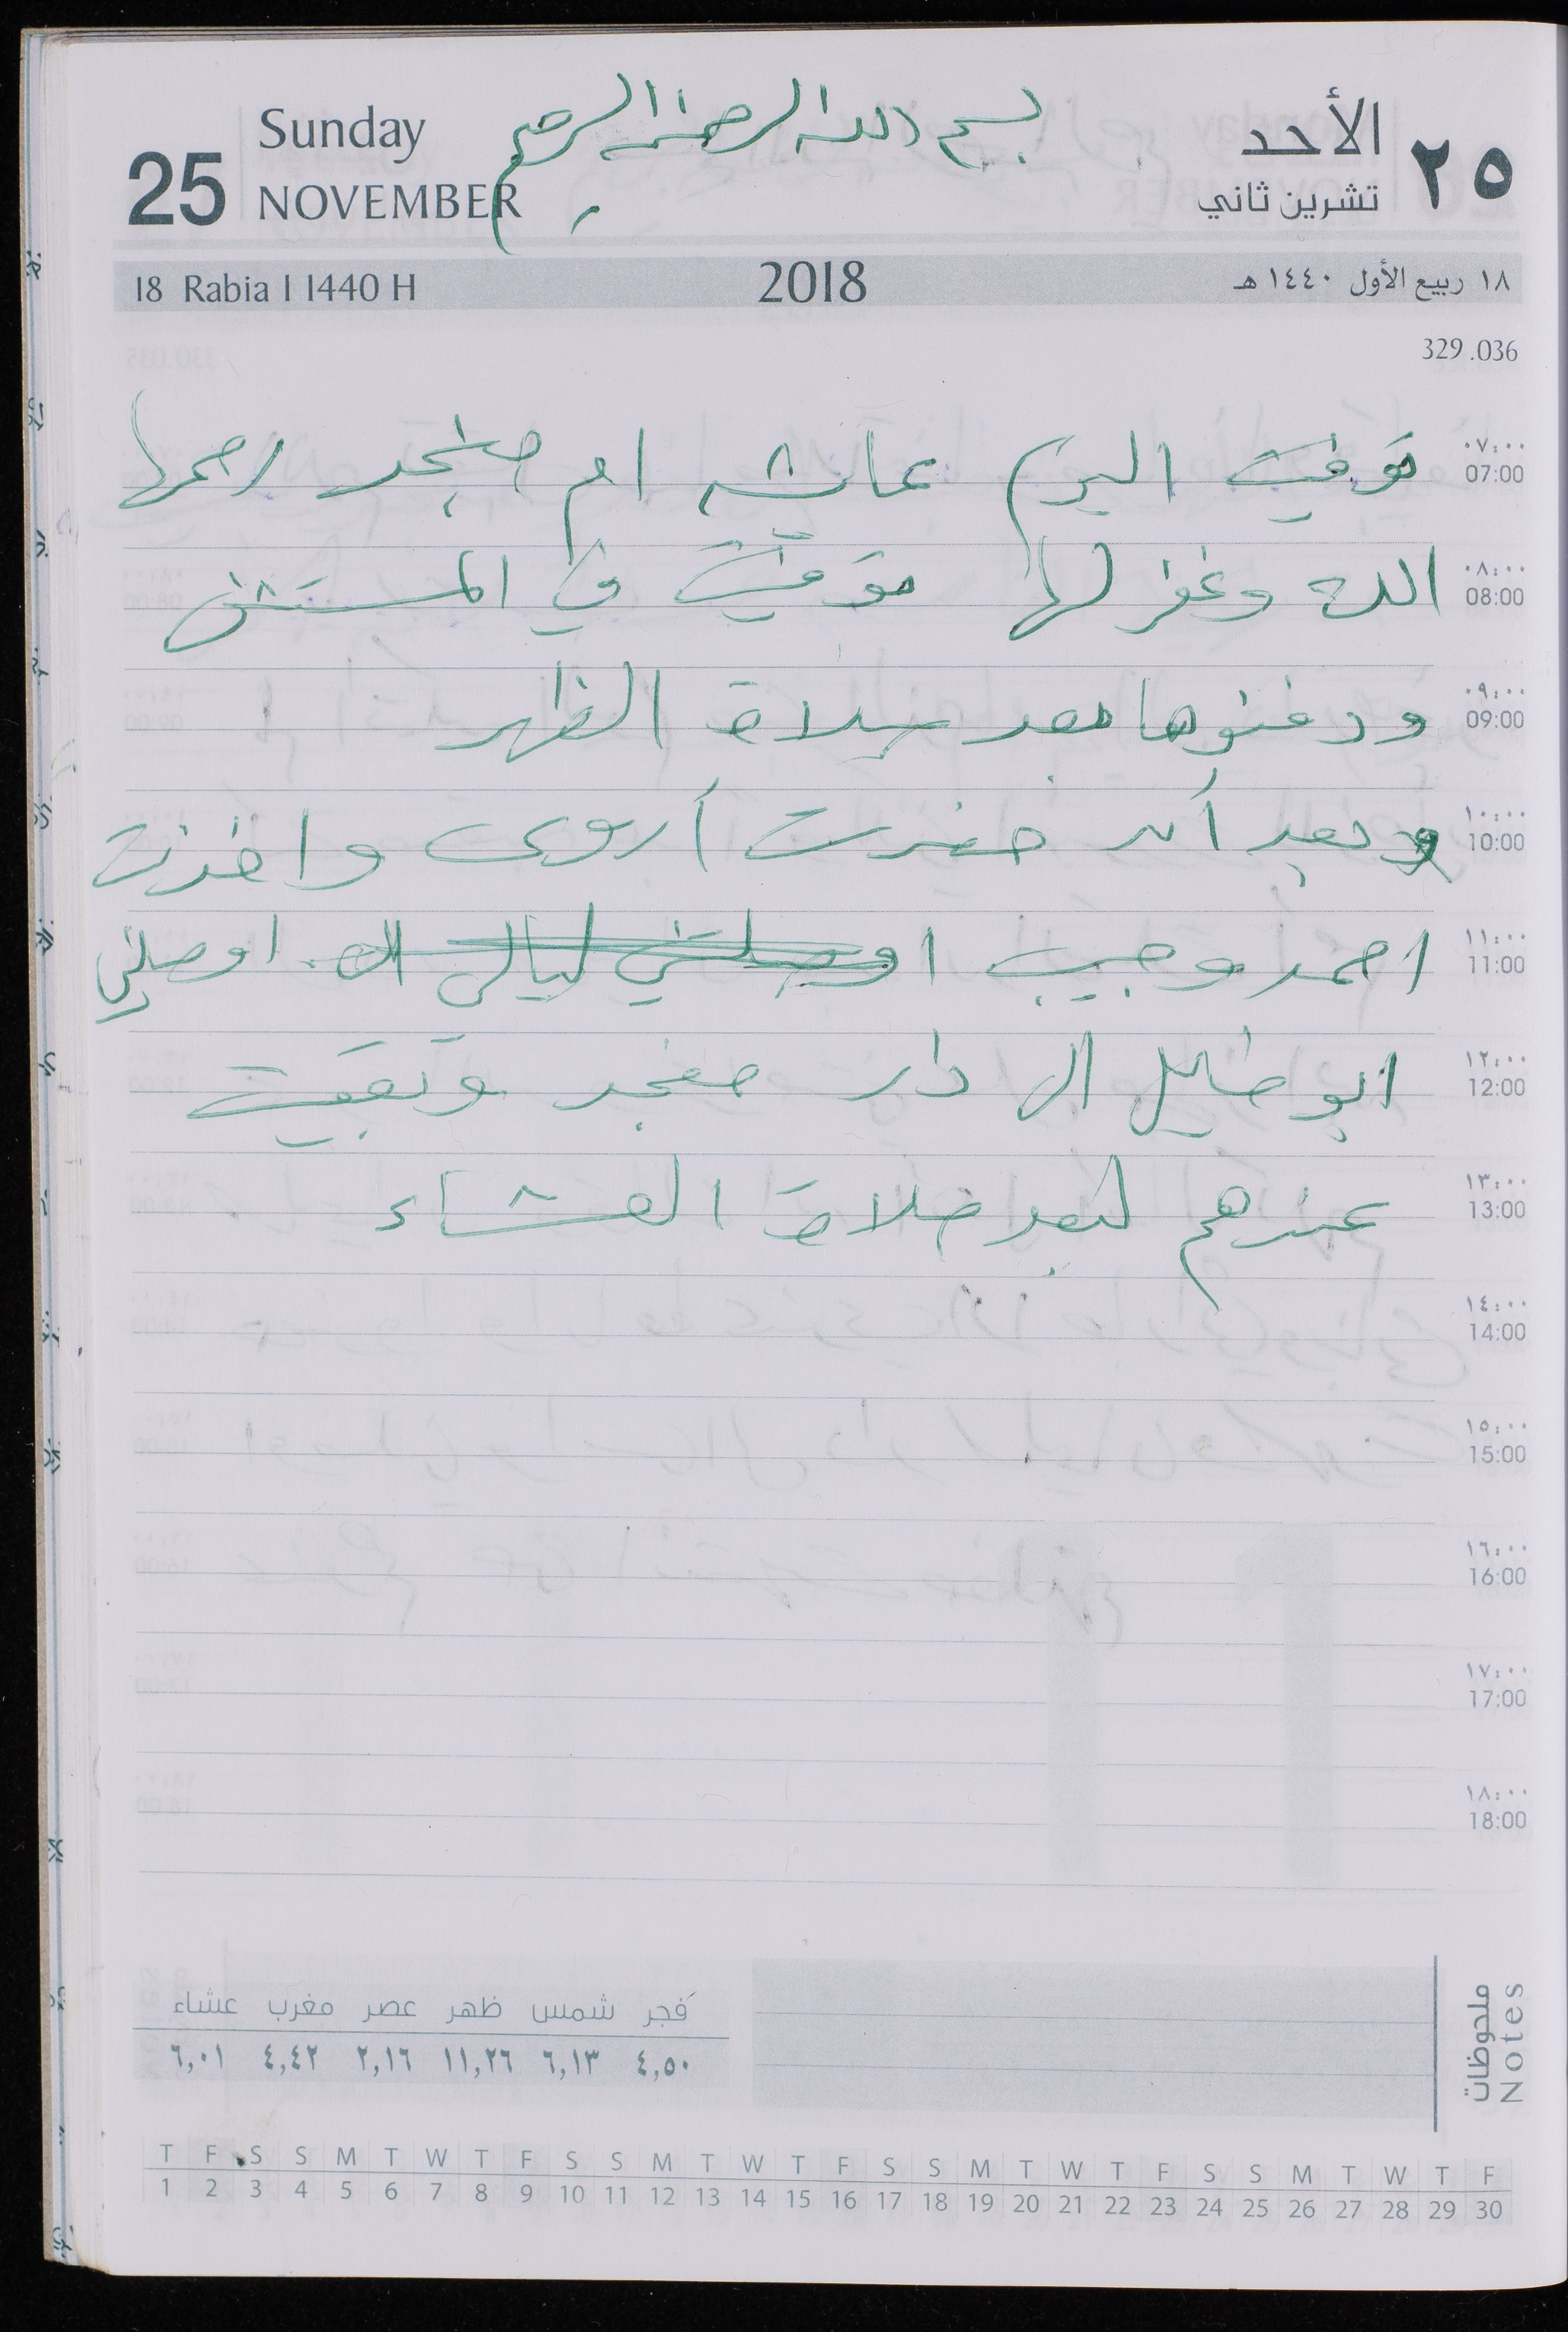 بسم الله الرحمن الرحيم
25 Sunday NOVEMBER
٢٥ الأحد تشرين ثاني
18 Rabia I 1440 H 2018 ١٨ ربيع الأول ١٤٤٠ هـ
329.036
توفيت اليوم عائشه ام منجد رحمها
الله وغفر لها توفيت في المستشفى
ودفنوها بعد صلاة الظهر
وبعد أن حضرت أروى واخذت
احمد وجيب اوصلني ليالي ال. اوصلني
ابو خليل الى دار منجد وبقيت
عندهم لبعد صلاة العشاء
٠٧:٠٠
07:00
٠٨:٠٠
08:00
٠٩:٠٠
09:00
١٠:٠٠
10:00
١١:٠٠
11:00
١٢:٠٠
12:00
١٣:٠٠
13:00
١٤:٠٠
14:00
١٥:٠٠
15:00
١٦:٠٠
16:00
١٧:٠٠
17:00
١٨:٠٠
18:00
ملحوظات
Notes
فجر شمس ظهر عصر مغرب عشاء
٤,٥٠ ٦,١٣ ١١,٢٦ ٢,١٦ ٤,٤٢ ٦,٠١
T F S S M T W T F S S M T W T F S S M T W T F S S M T W T F
1 2 3 4 5 6 7 8 9 10 11 12 13 14 15 16 17 18 19 20 21 22 23 24 25 26 27 28 29 30